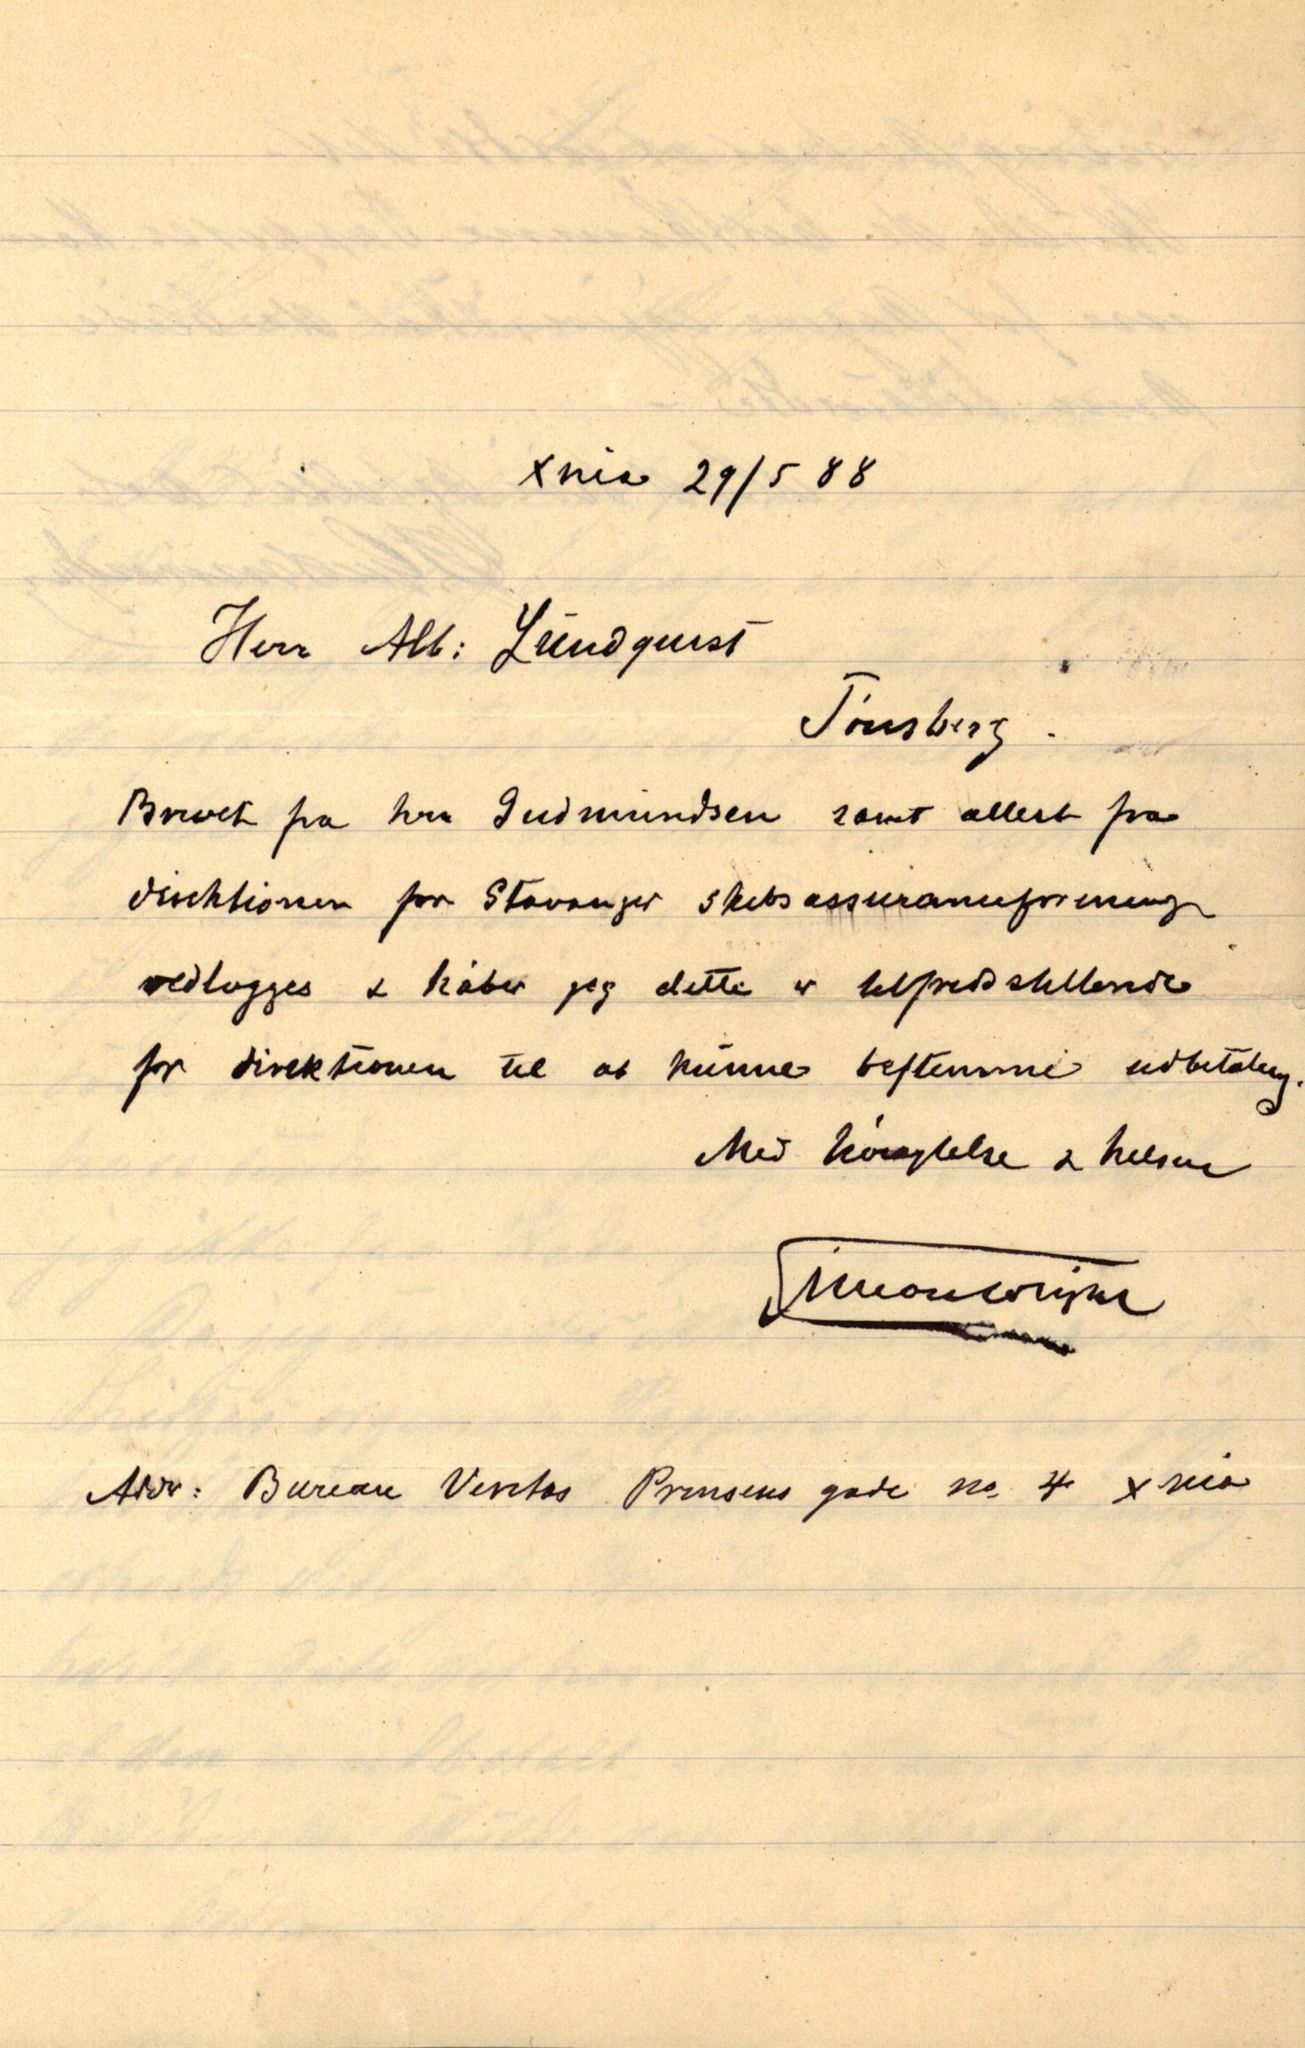 Xnia 29/5 88
Herr Alb: Lundquist
Tönsberg.
Brevet fra hrr Gudmundsen samt attest fra
direktionen for Stavanger skibsassuranceforening
vedlægges & håber jeg dette er tilfredsstillende
for direktionen til at kunne bestemme udbetaling.
Med höiagtelse & hilsen
Adr: Bureau Veritas Prinsens gade no. 4 Xnia